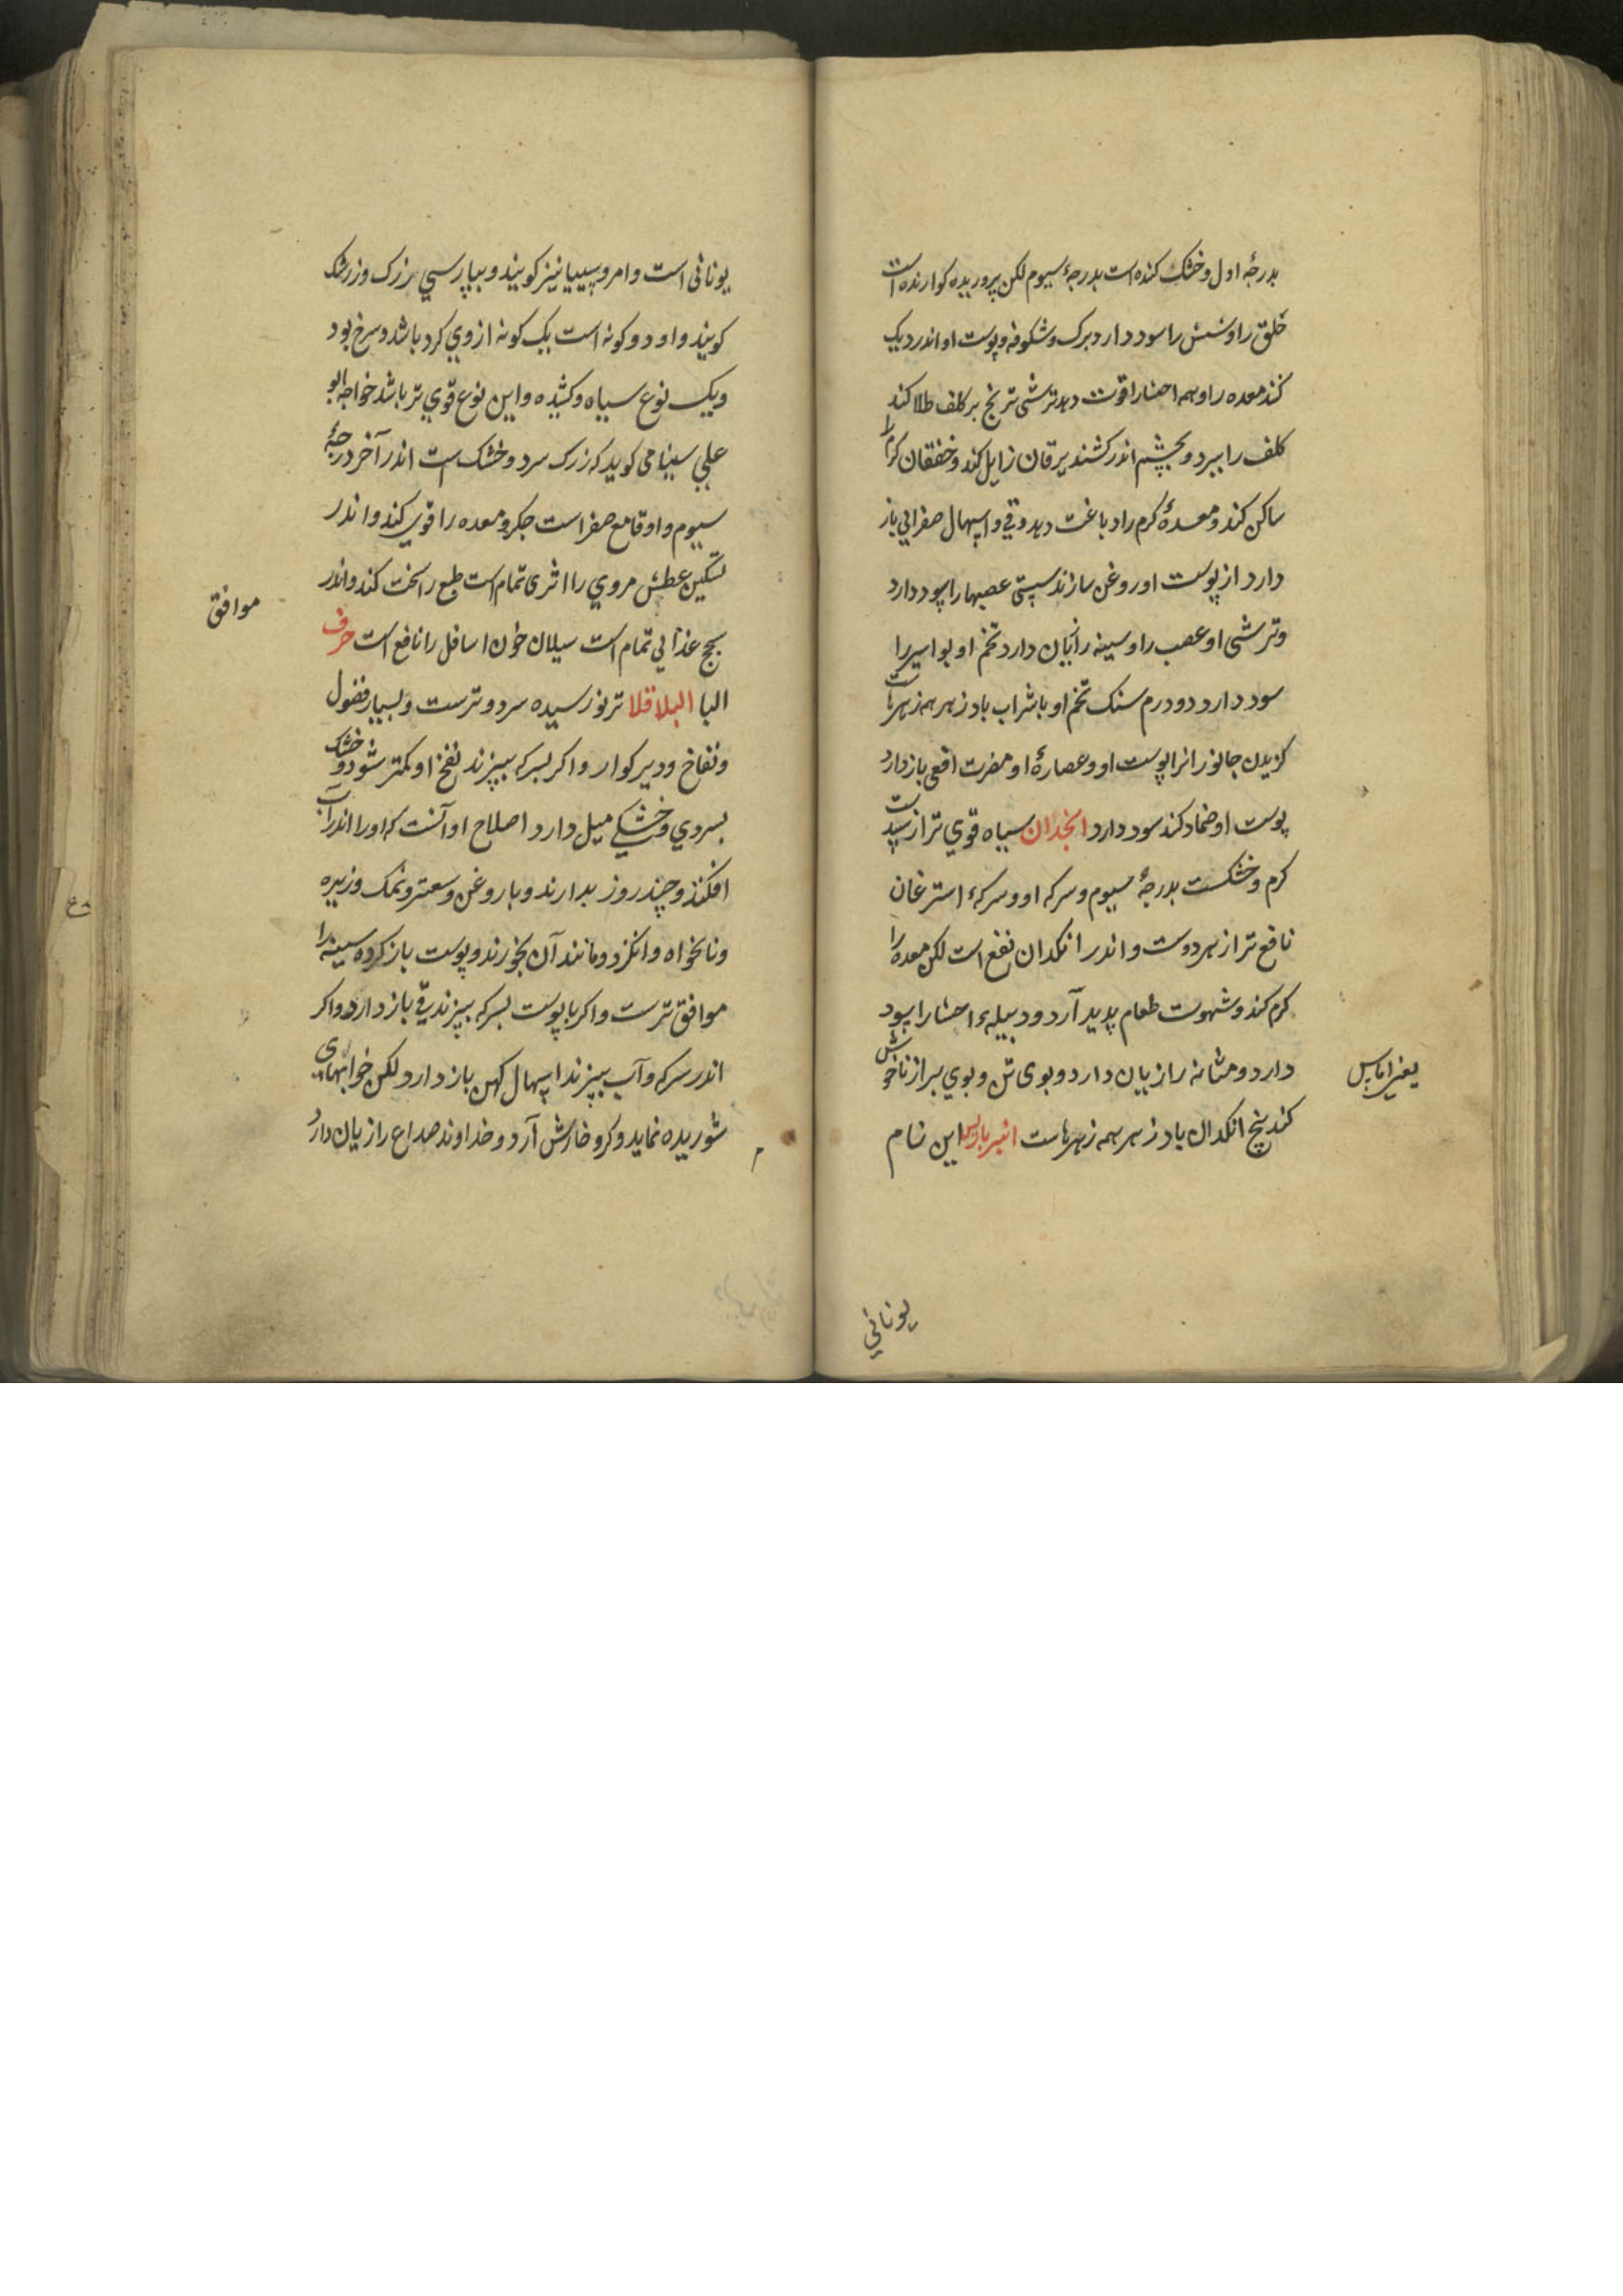 بدرجهٔ اول و خشک کننده است بدرجهٔ سیوم لکن پروریده کوارنده است
خلق را و شش را سود دارد برک و شکوفه و پوست او اندر دیک
کند معده را و همه احشا را قوت دهد ترشی ترنج بر کلف طلا کند
کلف را ببرد و بچشم اندر کشند یرقان زایل کند و خفقان کرم را
ساکن کند و معدهٔ کرم را دباغت دهد و قی و اسهال صفرایی باز
دارد از پوست او روغن سازند سستی عصبها را سود دارد
و ترشی او عصب را و سینه را زیان دارد تخم او بواسیر را
سود دارد دو درم سنک تخم او با شراب باد زهر همه زهرهاست
کزیدن جانورانرا پوست او و عصارهٔ او مضرت افعی باز دارد
پوست او ضماد کند سود دارد انجدان سیاه قوی تر از سپیدست
کرم و خشکست بدرجهٔ سیوم و سرکه او و سرکهٔ اشترغان
نافع تر از هر دوست و اندر انکدان نفخ است لکن معده را
کرم کند و شهوت طعام پدید آرد و دبیلهٔ احشا را سود
دارد و مثانه را زیان دارد و بوی تن و بوی براز ناخوش
کند بیخ انکدان باد زهر همه زهرهاست انبرباریس این نام
یونانی
یونانی است و امروسیا نیز کویند و بپارسی زرک و زرشک
کویند و او دو کونه است یک کونه از وی کرد باشد و سرخ بود
و یک نوع سیاه و کشیده و این نوع قوی تر باشد خواجه ابو
علی سینا می کوید که زرک سرد و خشک ست اندر آخر درجهٔ
سیوم و او قامع صفراست جکر و معده را قوی کند و اندر
تسکین عطش مروی را اثری تمام است طبع را سخت کند و اندر
سحج غذایی تمام است سیلان خون اسافل را نافع است حرف
البا البلاقلا تر نورسیده سرد و ترست و بسیار فضول
و نفاخ و دیر کوار و اکر بسرکه بپزند نفخ او کمتر شود و خشک
بسردی و خشکی میل دارد اصلاح او آنست که او را اندر آب
افکنند و چند روز بدارند و با روغن و سعتر و نمک و زیره
و نانخواه و انکزد و مانند آن بخورند و پوست باز کرده سینه را
موافق ترست و اکر با پوست بسرکه بپزند قی باز دارد و اکر
اندر سرکه و آب بپزند اسهال کهن باز دارد لکن خوابهای
شوریده نماید و کر و خارش آرد و خداوند صداع را زیان دارد
موافق